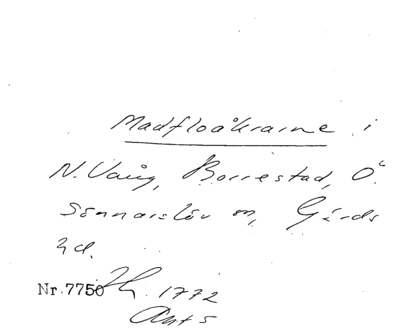 Madfloåkrarne i
N. Vång, Borrestad, Ö.
Sönnarslöv sn, Gärds
hd.
Nr. 7750 Jh. 1772
Akt 5